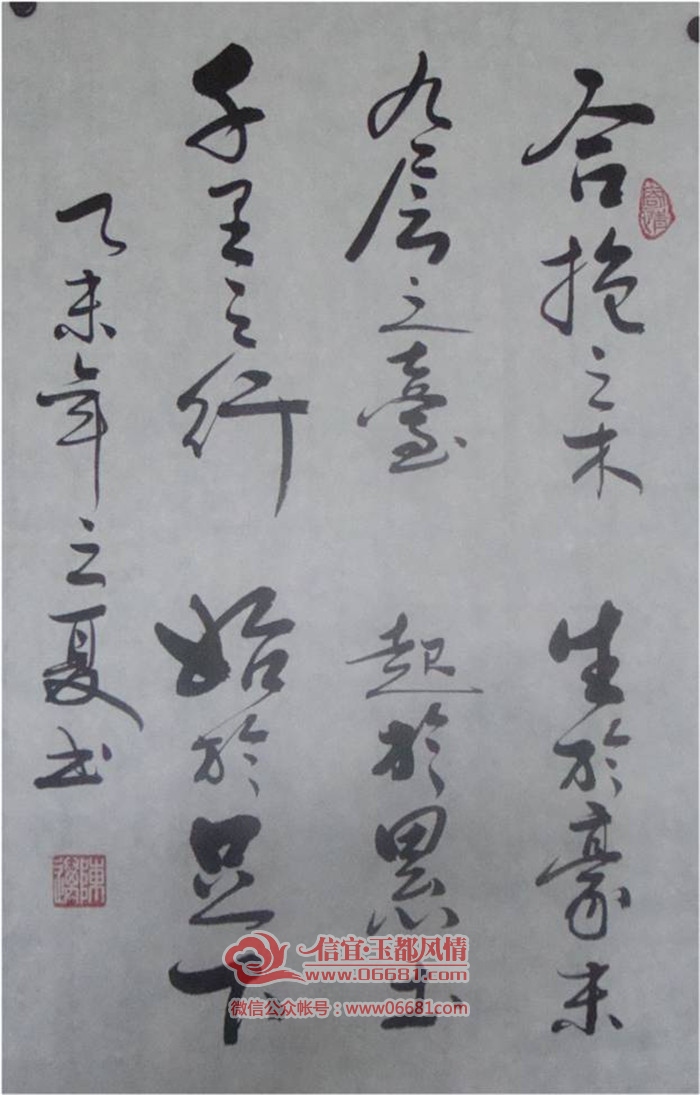 合抱之木 生於豪末
九层之臺 起於累土
千里之行 始於足下
乙未年之夏书
信宜·玉都风情
www.06681.com
微信公众帐号：www06681com